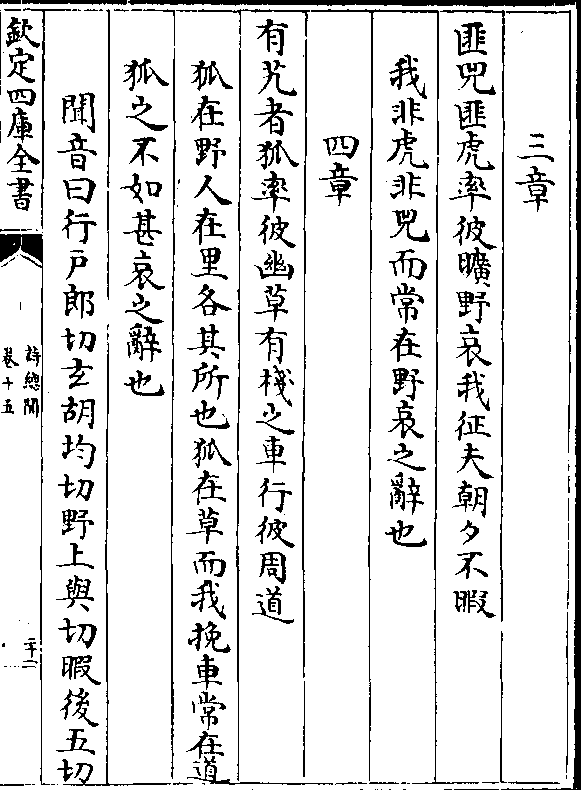 三章
匪兕匪虎率彼曠野哀我征夫朝夕不暇
我非虎非兕而常在野哀之辭也
四章
有芃者狐率彼幽草有棧之車行彼周道
狐在野人在里各其所也狐在草而我挽車常在道
狐之不如甚哀之辭也
聞音曰行戸郎切𤣥胡均切野上與切暇後五切
欽定四庫全書
詩總聞
卷十五
二十二